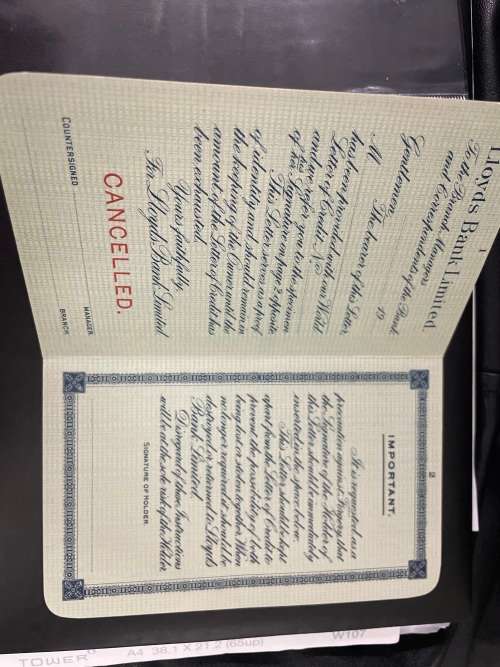 1
Lloyds Bank Limited
To the Branch Managers
and Correspondents of the Bank.
19
Gentlemen,
The bearer of this Letter
M
has been provided with our World
Letter of Credit No
and we refer you to the specimen
of his Signature on page 2 opposite.
her
This Letter serves as a proof
of identity and should remain in
the keeping of the Owner until the
amount of the Letter of Credit has
been exhausted.
Yours faithfully,
For Lloyds Bank Limited
CANCELLED.
MANAGER
COUNTERSIGNED
BRANCH
2
IMPORTANT.
It is requested as a
precaution against Forgery that
the Signature of the Holder of
this Letter should be immediately
inserted in the space below.
This Letter should be kept
apart from the Letter of Credit to
prevent the possibility of both
being lost or stolen together. When
no longer required it should be
destroyed or returned to Lloyds
Bank Limited.
Disregard of these Instructions
will be at the sole risk of the Holder
SIGNATURE OF HOLDER.
TOWER
A4 38.1 X 21.2 (65up)
W107